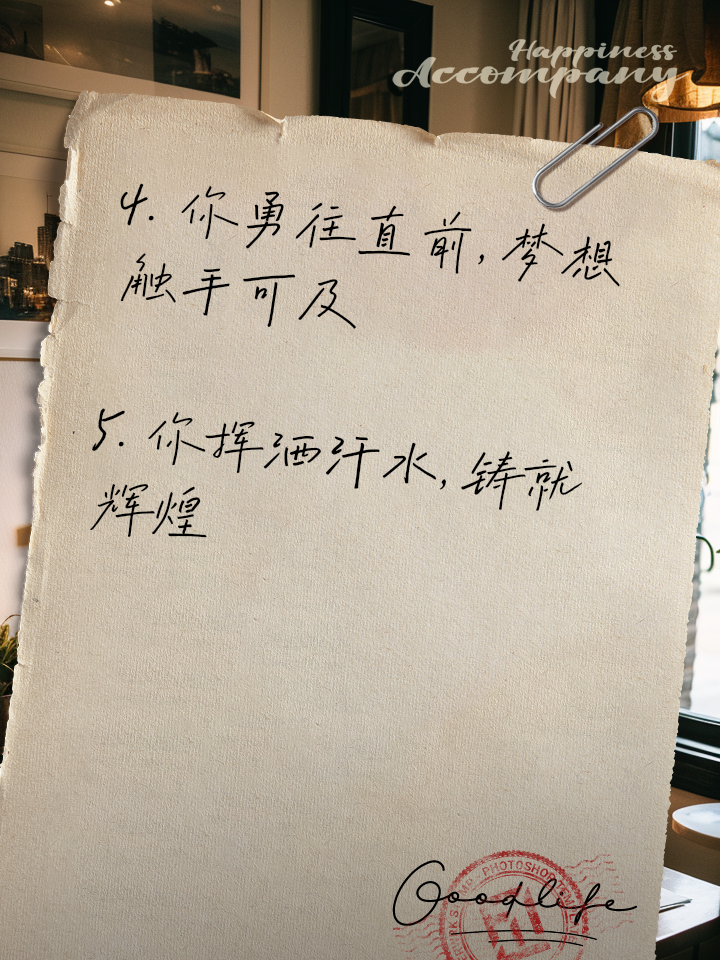 Happiness
Accompany
4. 你勇往直前,梦想
触手可及
5. 你挥洒汗水,铸就
辉煌
Goodlife